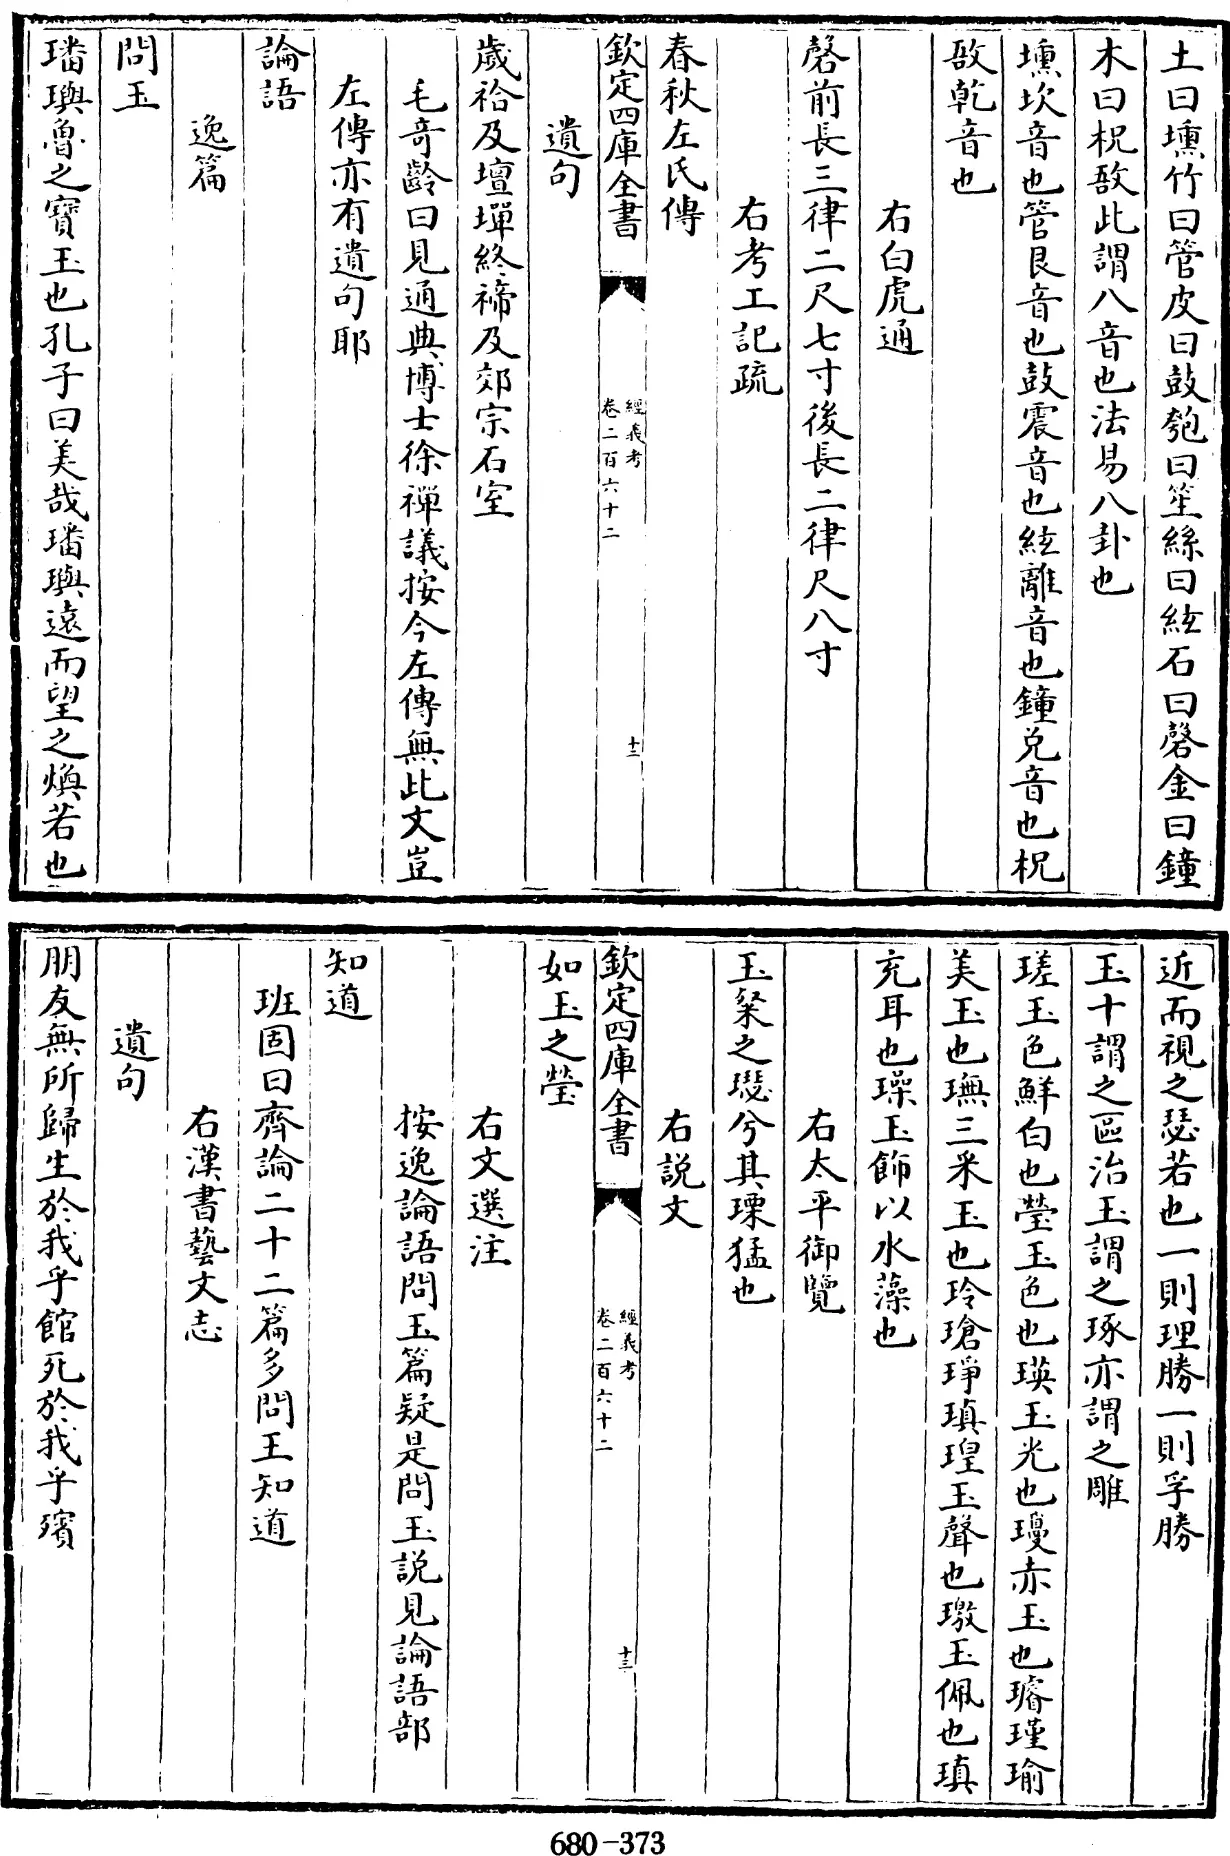 土曰壎竹曰管皮曰鼓匏曰笙絲曰絃石曰磬金曰鐘
木曰柷敔此謂八音也法易八卦也
壎坎音也管艮音也鼓震音也絃離音也鐘兌音也柷
敔乾音也
右白虎通
磬前長三律二尺七寸後長二律尺八寸
右考工記疏
春秋左氏傳
欽定四庫全書
經義考
卷二百六十二
十二
遺句
歲祫及壇墠終禘及郊宗石室
毛奇齡曰見通典博士徐禪議按今左傳無此文豈
左傳亦有遺句耶
論語
逸篇
問玉
璠璵魯之寶玉也孔子曰美哉璠璵遠而望之煥若也
近而視之瑟若也一則理勝一則孚勝
玉十謂之區治玉謂之琢亦謂之雕
瑳玉色鮮白也瑩玉色也瑛玉光也璊赤玉也璿瑾瑜
美玉也璑三采玉也玲瑲琤瑱瑝玉聲也璬玉佩也瑱
充耳也璪玉飾以水藻也
右太平御覽
玉粲之璱兮其瑮猛也
右説文
欽定四庫全書
經義考
卷二百六十二
十三
如玉之瑩
右文選注
按逸論語問玉篇疑是問王説見論語部
知道
班固曰齊論二十二篇多問王知道
右漢書藝文志
遺句
朋友無所歸生於我乎館死於我乎殯
680-373